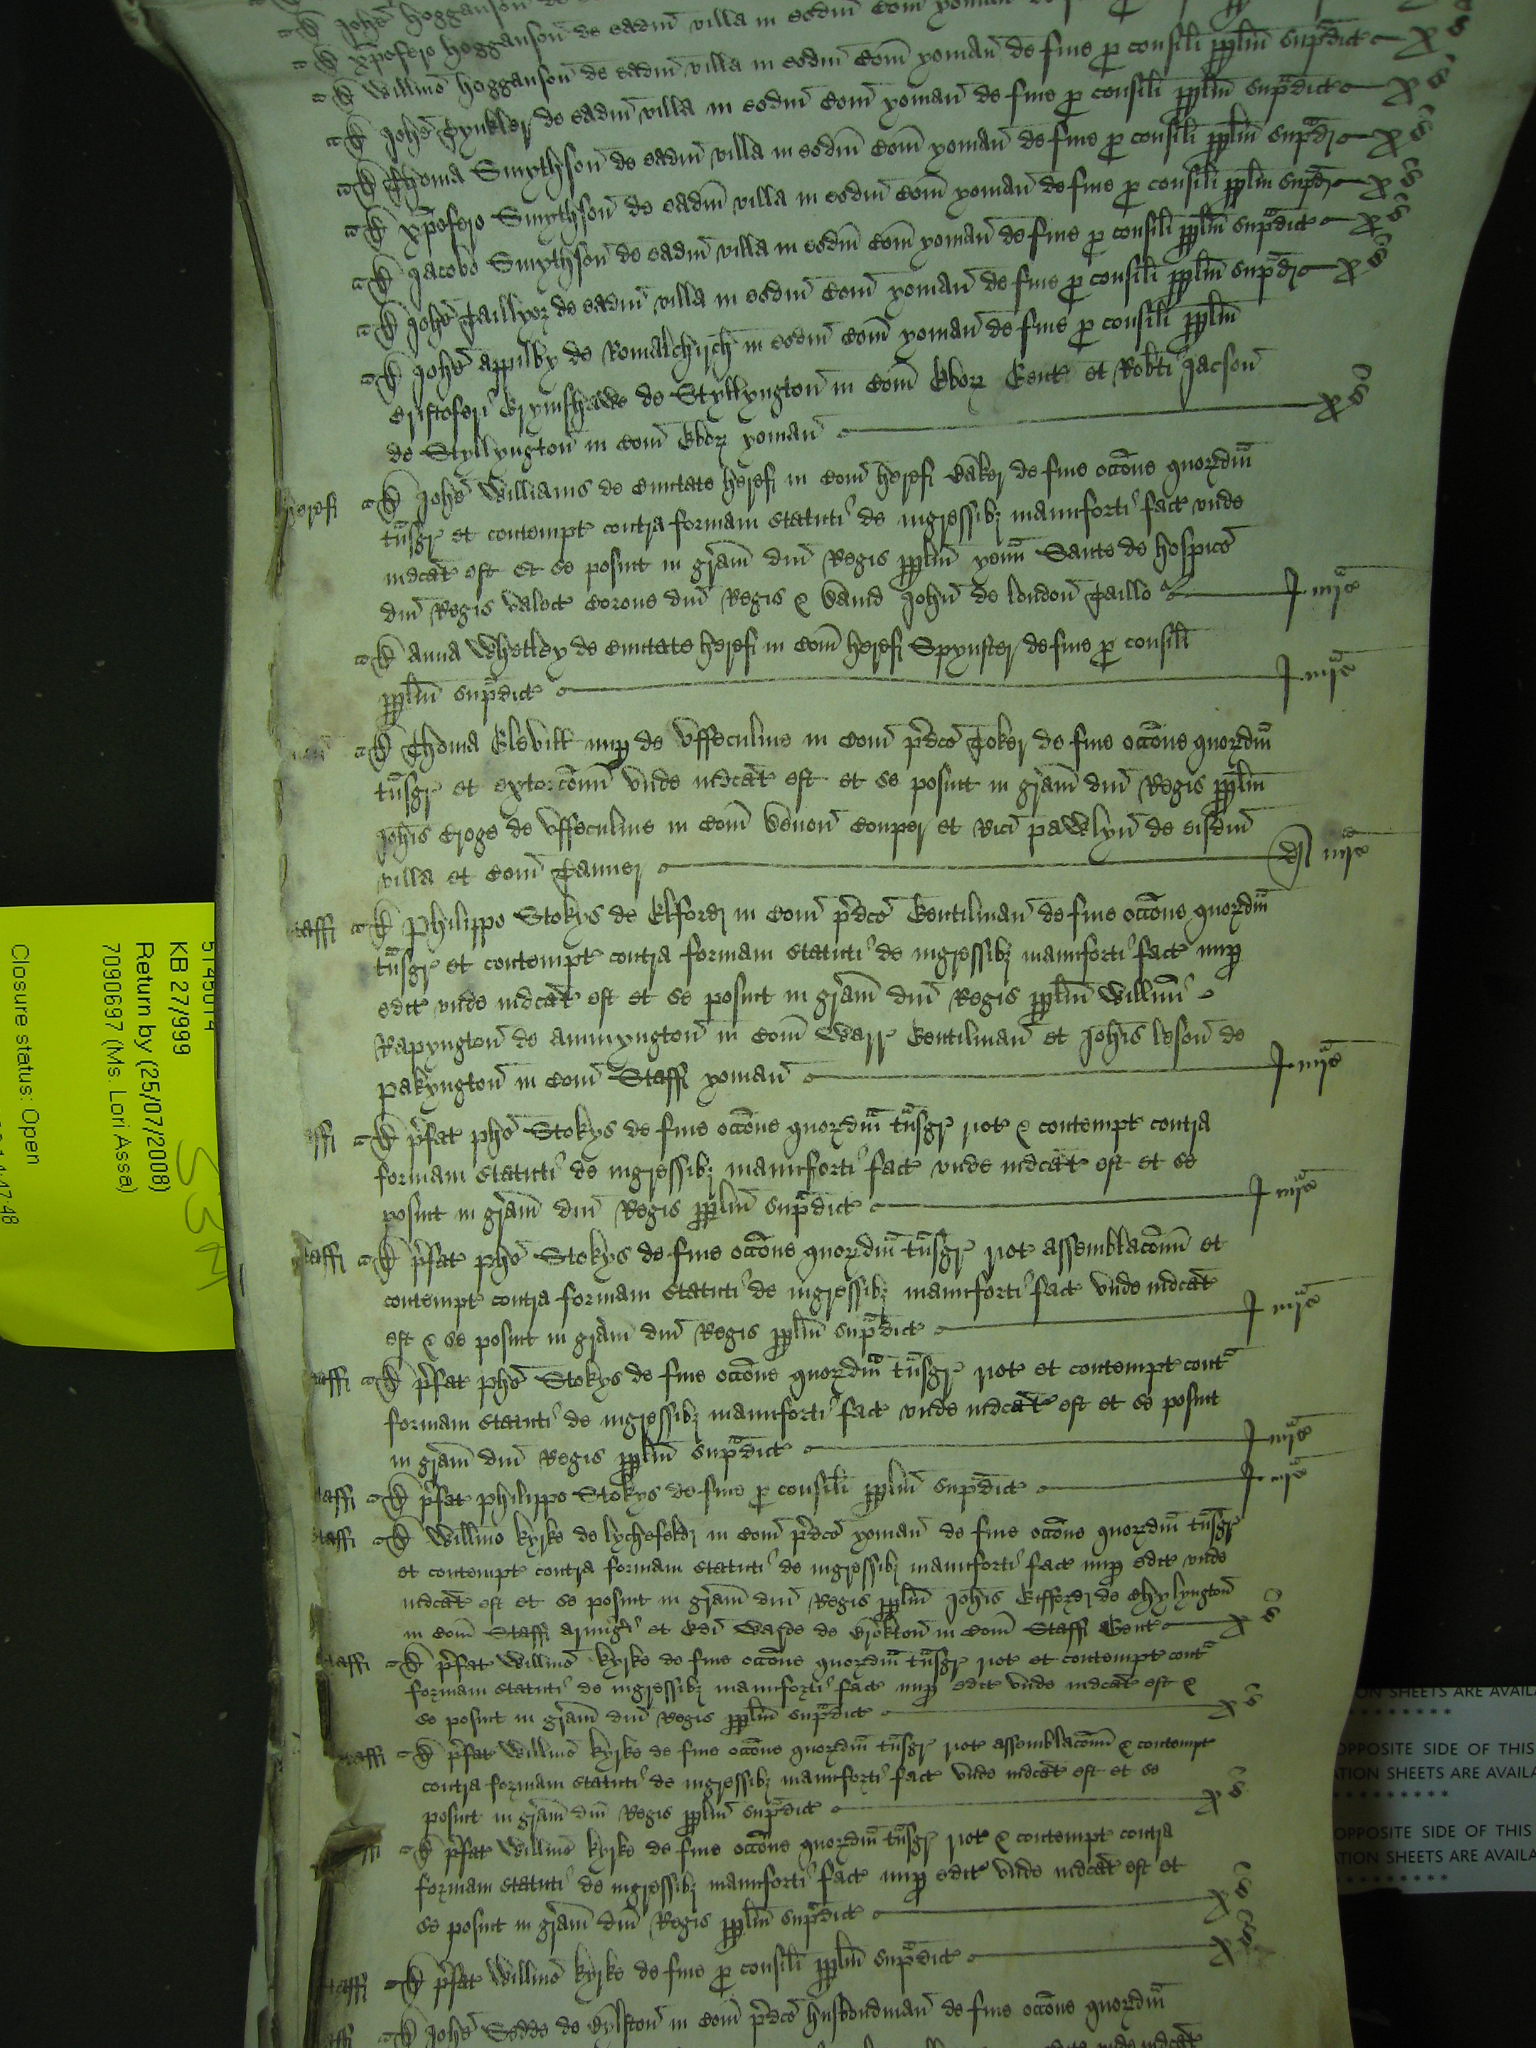 D Johe Hogganson de
D Xpofero Hogganson de eadm villa in eodm Com yoman de fine p consili pplm
D Willmo Hogganson de eadm villa in eodm Com yoman de fine p consili pplm supadict x s
D Johe Tynkler de eadm villa in eodm Com yoman de fine p consili pplm supadict x s
D Thoma Smythson de eadm villa in eodm Com yoman de fine p consili pplm supad x s
D Xpofero Smythson de eadm villa in eodm Com yoman de fine p consili pplm supad x s
D Jacobo Smythson de eadm villa in eodm Com yoman de fine p consili pplm supadict x s
D Johe Taillyor de eadm villa in eodm Com yoman de fine p consili pplm supad x s
D Johe Appulby de Romalchirch in eodm Com yoman de fine p consili pplm
Cristoferi Grymshawe de Styllyngton in Com Ebor Gent et Robti Jacson
de Styllyngton in Com Ebor yoman x s
Heref D Johe Williams de Civitate Heref in Com Heref Baker de fine occone quordm
tnsgr et contempt contra formam statuti de ingressibz manuforti fact unde
indcat est et se posuit in gram dni Regis pplm
dni Regis valect Corone dni Regis & David John de london Taillo j mre
D Anna Whetley de Civitate Heref in Com Heref Spynster de fine p consili
pplm supadict j mre
D Thoma Clevill nup de Uffculme in Com pdco Toker de fine occone quordm
tnsgr et extorconu unde indcat est et se posuit in gram dni Regis pplm
Johis Croge de Uffculme in Com Devon Couper et Rici Pawlyn de eisdm
villa et Com Tanner di mre
taff D Philippo Stokys de Elford in Com pdco Gentilman de fine occone quordm
tnsgr et contempt contra formam statuti de ingressibz manuforti fact nup
edit unde indcat est et se posuit in gram dni Regis pplm Willmi
Rapyngton de Amyngton in Com Warr Gentilman et Johis leson de
Pakyngton in Com Staff yoman j mre
ff D pfat Pho Stokys de fine occone quordm tnsgr riot & contempt contra
formam statuti de ingressibz manuforti fact unde indcat est et se
posuit in gram dni Regis pplm supadict j mre
taff D pfat Pho Stokys de fine occone quordm tnsgr riot assemblaconu et
contempt contra formam statuti de ingressibz manuforti fact unde indcat
est & se posuit in gram dni Regis pplm supadict j mre
taff D pfat Pho Stokys de fine occone quordm tnsgr riot et contempt conta
formam statuti de ingressibz manuforti fact unde indcat est et se posuit
in gram dni Regis pplm supadict j mre
taff D pfat Philippo Stokys de fine p consili pplm supadict j mre
taff D Willmo Kyrke de lychefeld in Com pdco yoman de fine occone quordm tnsgr
et contempt contra formam statuti de ingressibz manuforti fact nup edit unde
indcat est et se posuit in gram dni Regis pplm Johis Gifford de Chylyngton
in Com Staff armigi et Edi Warde de Brokton in Com Staff Gent x s
taff D pfat Willmo Kyrke de fine occone quordm tnsgr riot et contempt conta
formam statuti de ingressibz manuforti fact nup edit unde indcat est &
se posuit in gram dni Regis pplm supadict x s
taff D pfat Willmo Kyrke de fine occone quordm tnsgr riot assemblaconu & contempt
contra formam statuti de ingressibz manuforti fact unde indcat est et se
posuit in gram dni Regis pplm supadict x s
ff D pfat Willmo Kyrke de fine occone quordm tnsgr riot & contempt contra
formam statuti de ingressibz manuforti fact nup edit unde indcat est et
se posuit in gram dni Regis pplm supadict x s
taff D pfat Willmo Kyrke de fine p consili pplm supadict x s
ff D Johe in Com pdco husbondman de fine occone quordm
5745014
KB 27/999
Return by (25/07/2008)
7090697 (Ms. Lori Assa)
Closure status: Open
ON SHEETS ARE AVAILA
OPPOSITE SIDE OF THIS
TION SHEETS ARE AVAILA
OPPOSITE SIDE OF THIS
TION SHEETS ARE AVAILA